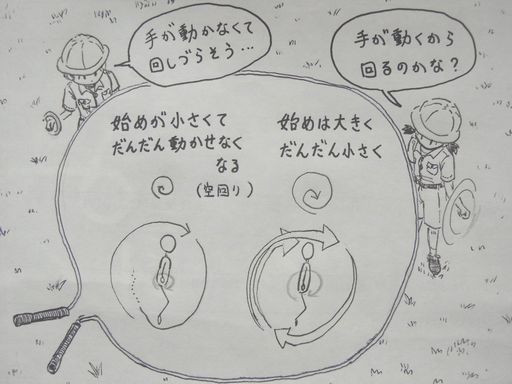 手が動かなくて
回しづらそう…
手が動くから
回るのかな？
始めが小さくて
だんだん動かせなく
なる
(空回り)
始めは大きく
だんだん小さく